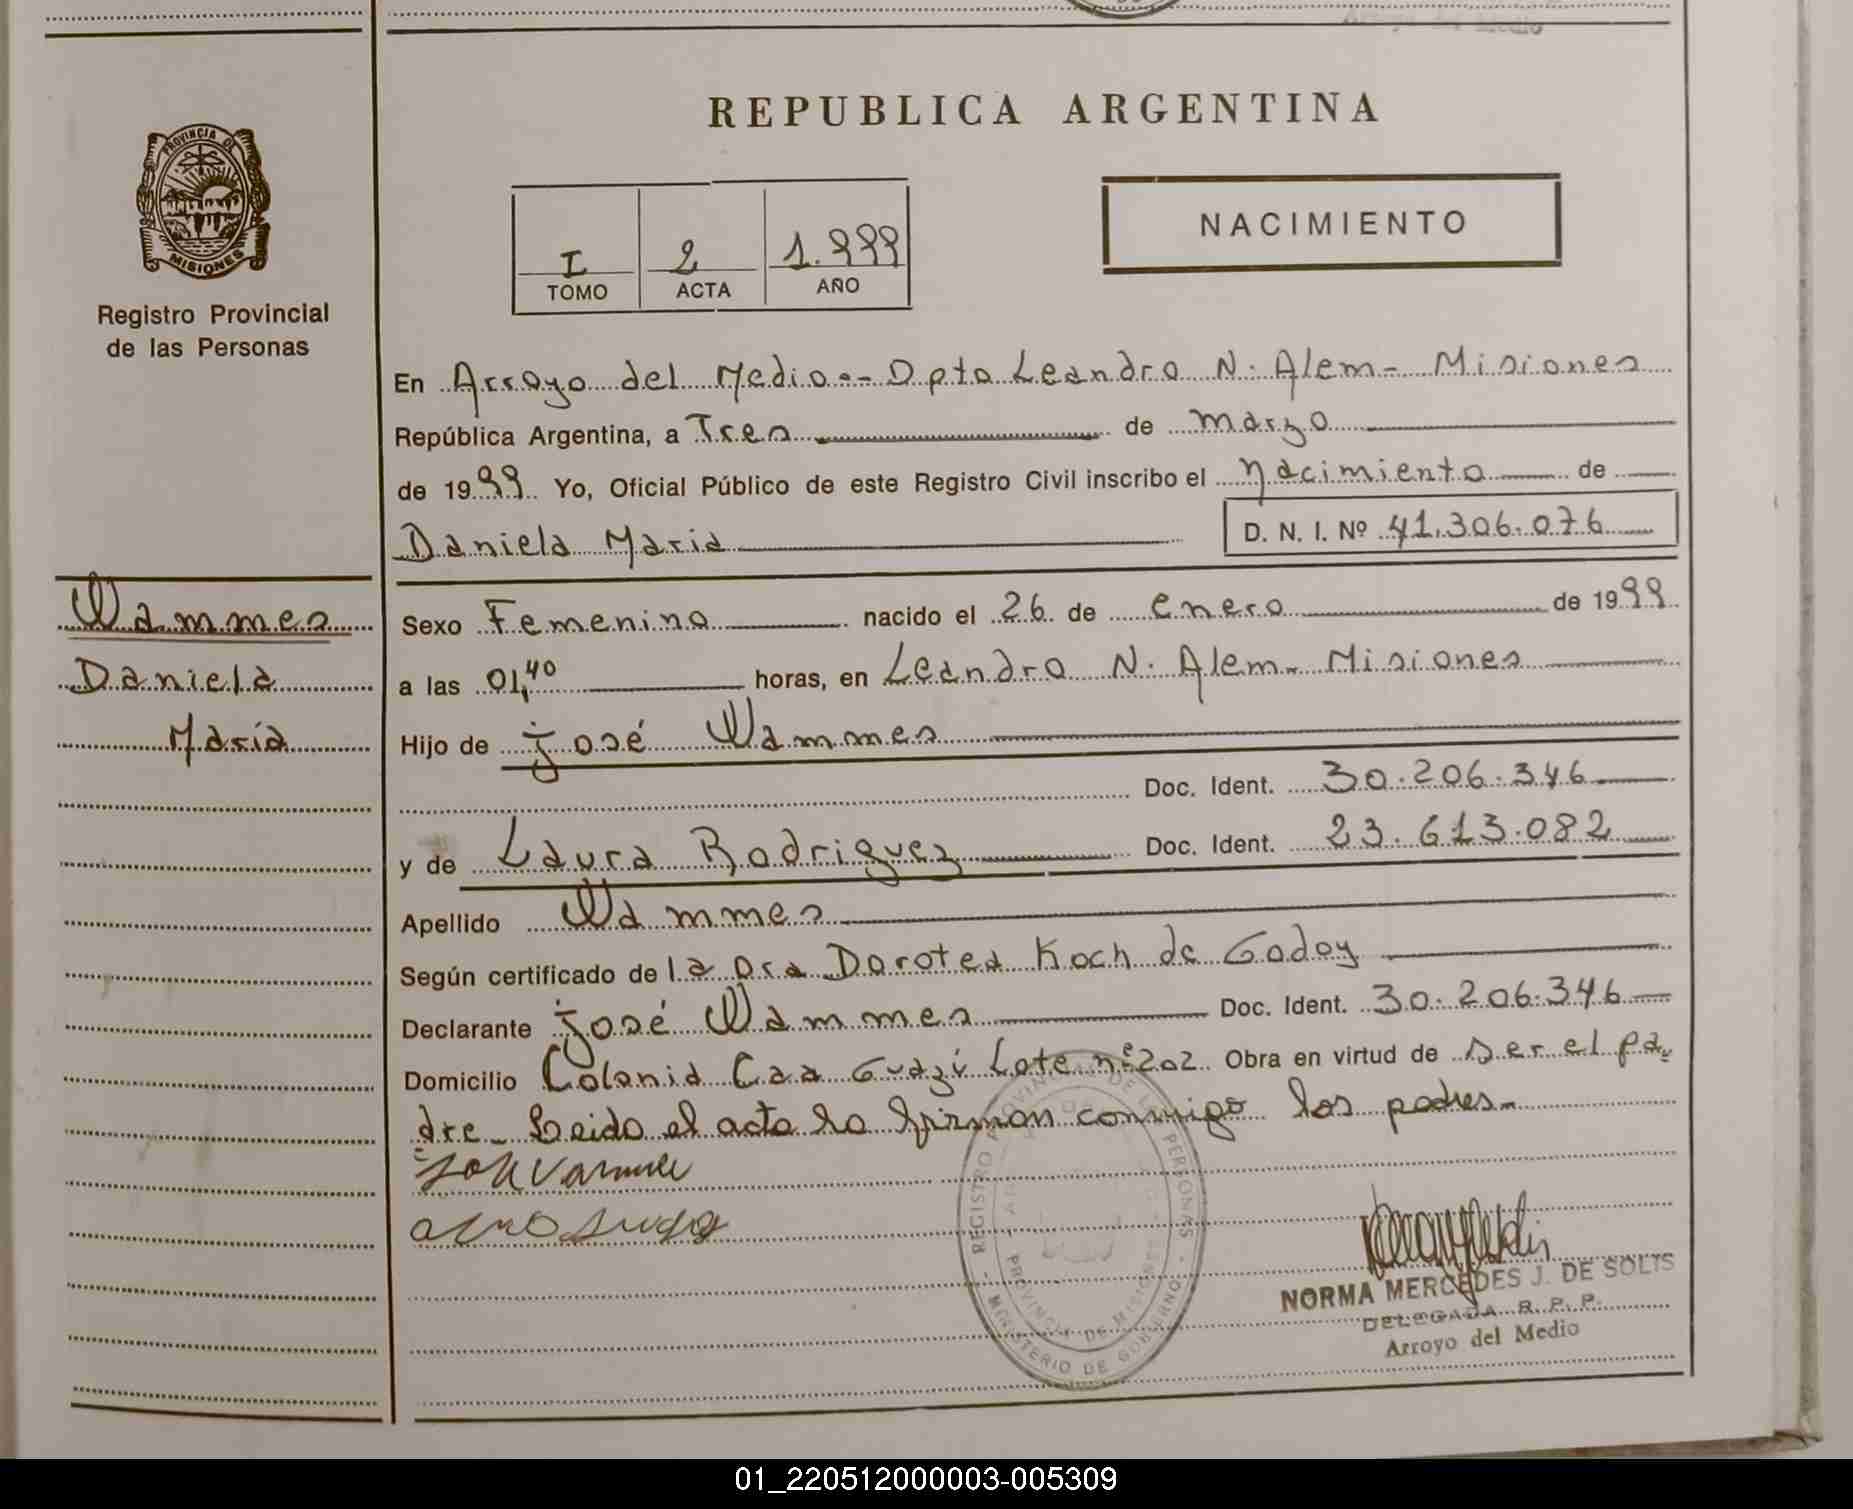 Arroyo del Medio
REPUBLICA ARGENTINA
PROVINCIA DE
MISIONES
Registro Provincial
de las Personas
NACIMIENTO
I 2 1.999
TOMO ACTA AÑO
En Arroyo del Medio.- Dpto Leandro N. Alem- Misiones
República Argentina, a Tres de marzo
de 1999 Yo, Oficial Público de este Registro Civil inscribo el Nacimiento de
Daniela Maria D. N. I. Nº 41.306.076
Wammes
Daniela
María
Sexo Femenino nacido el 26 de enero de 1999
a las 01,40 horas, en Leandro N. Alem- Misiones
Hijo de José Wammes
Doc. Ident. 30.206.346
y de Laura Rodriguez Doc. Ident. 23.613.082
Apellido Wammes
Según certificado de la Dra Dorotea Koch de Godoy
Declarante José Wammes Doc. Ident. 30.206.346
Domicilio Colonia Caa Guazú Lote nº 202 Obra en virtud de ser el pa
dre- Leido el acta la firman conmigo los padres-
REGISTRO PROVINCIAL DE LAS PERSONAS - MINISTERIO DE GOBIERNO
PROVINCIA DE MISIONES
NORMA MERCEDES J. DE SOLIS
DELEGADA R. P. P.
Arroyo del Medio
01_220512000003-005309